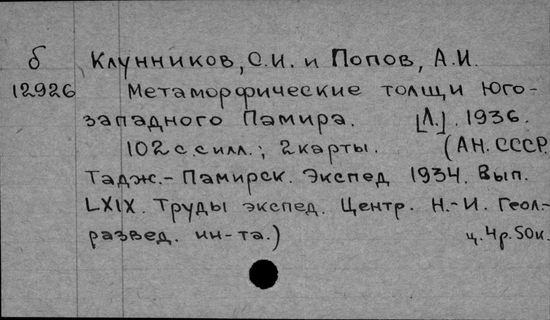 б
12926
Клунников, С.И. и Попов, А.И.
Метаморфические толщи Юго-
западного Памира. [Л.]. 1936.
102 с. с илл.; 2 карты. (АН. СССР.
Тадж.-Памирск. Экспед 1934. Вып.
LXIX. Труды экспед. Центр. Н.-И. Геол.-
развед. ин-та.) ц. 4р. 50к.